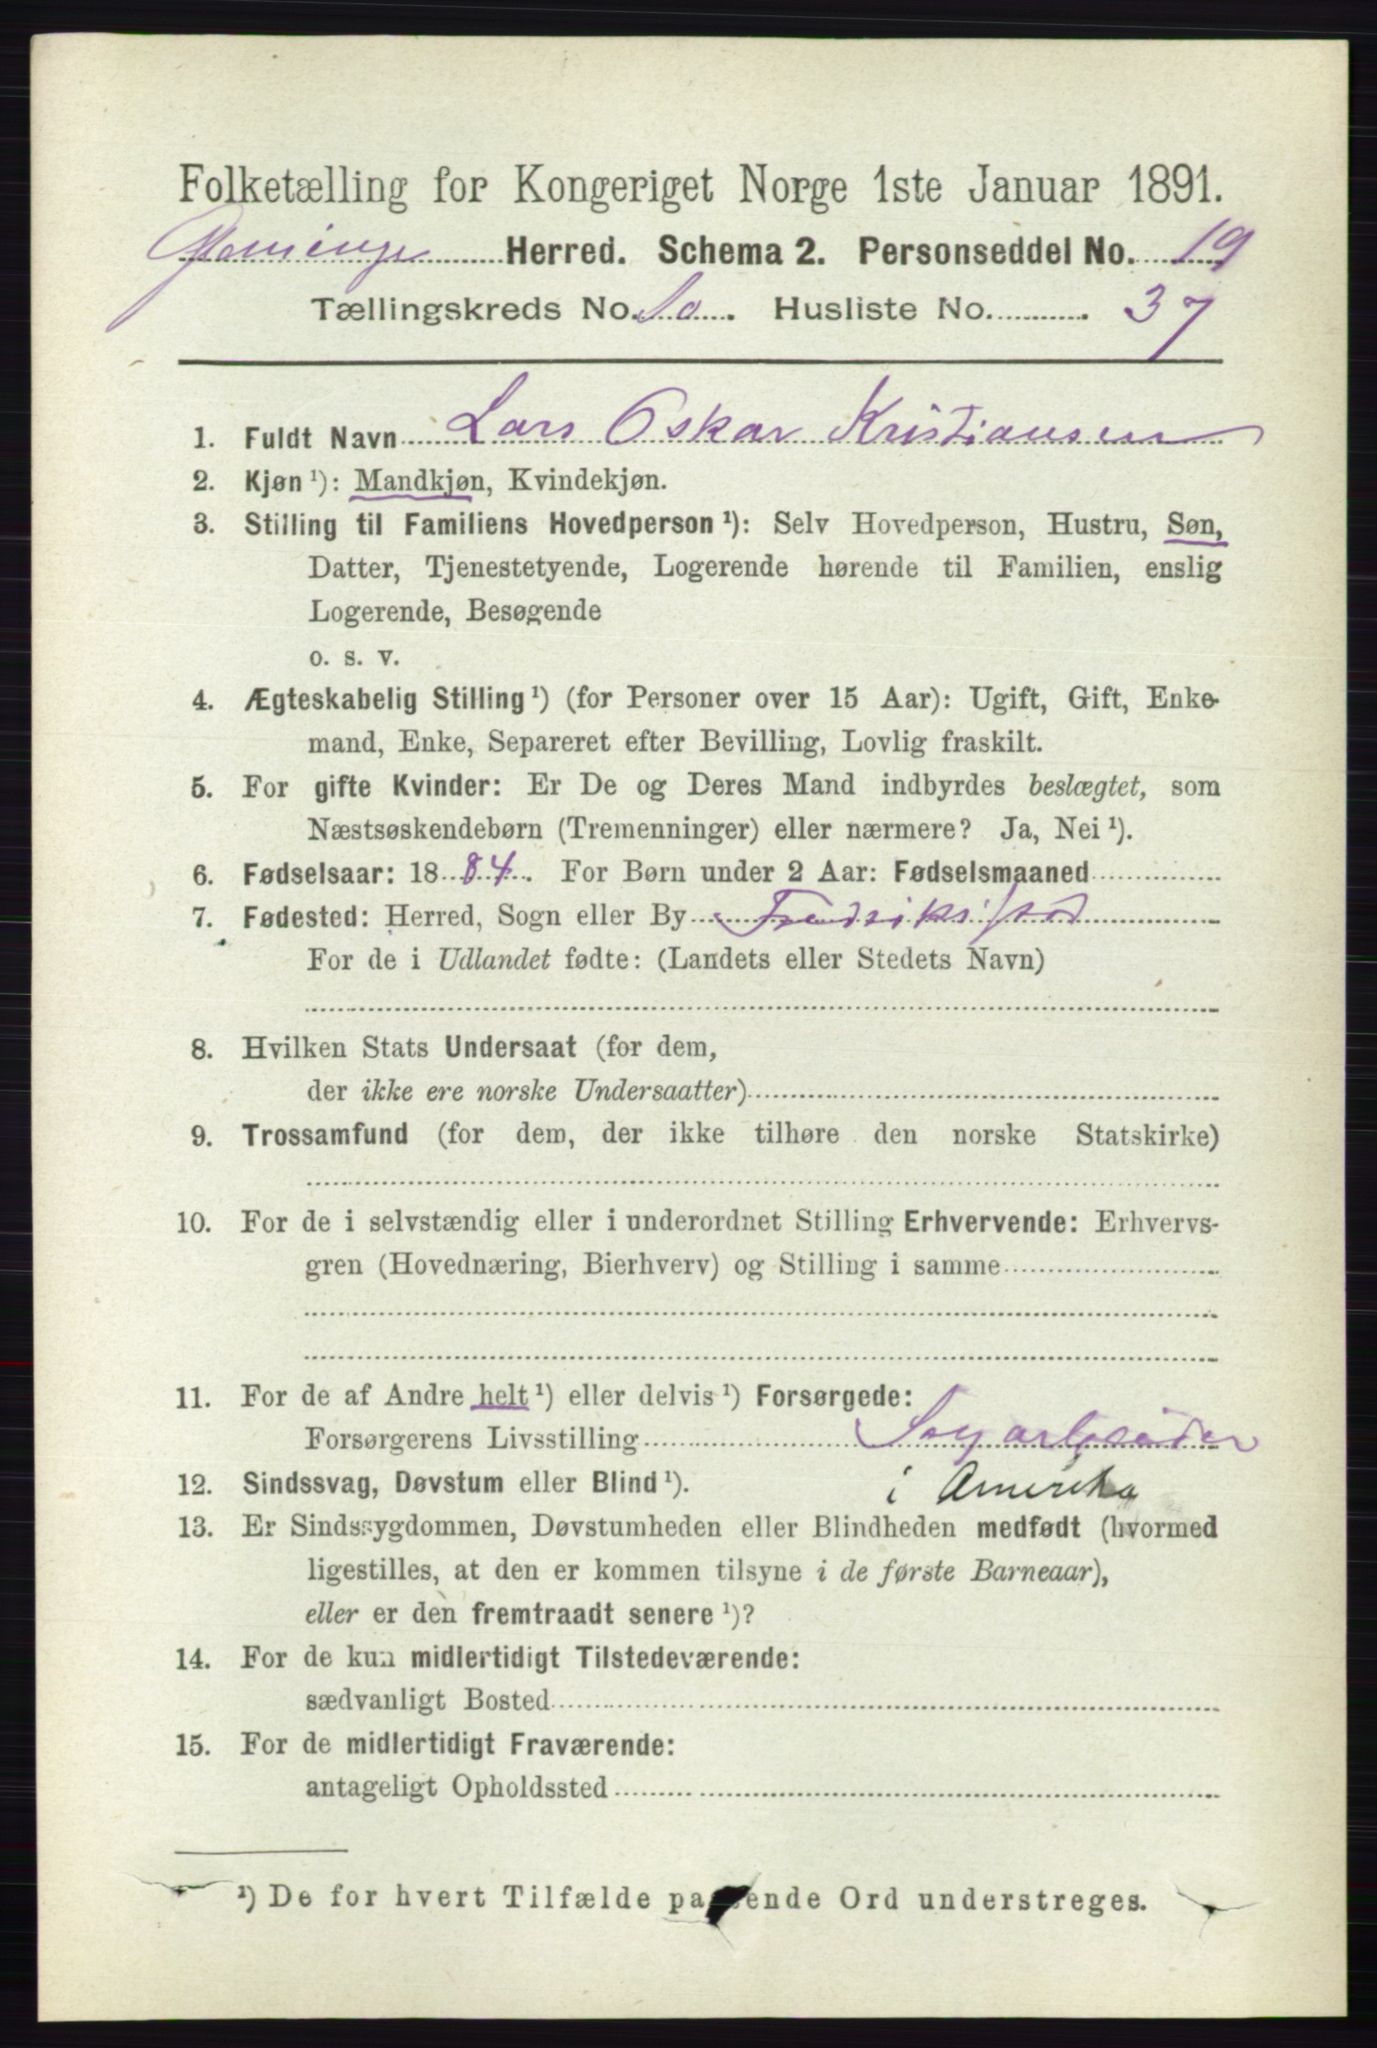 Folketælling for Kongeriget Norge 1ste Januar 1891.
Glemminge Herred. Schema 2. Personseddel No. 19
Tællingskreds No. 10. Husliste No. 37
1. Fuldt Navn Lars Oskar Kristiansen
2. Kjøn ¹): Mandkjøn, Kvindekjøn.
3. Stilling til Familiens Hovedperson ¹): Selv Hovedperson, Hustru, Søn,
Datter, Tjenestetyende, Logerende hørende til Familien, enslig
Logerende, Besøgende
o. s. v.
4. Ægteskabelig Stilling ¹) (for Personer over 15 Aar): Ugift, Gift, Enke-
mand, Enke, Separeret efter Bevilling, Lovlig fraskilt.
5. For gifte Kvinder: Er De og Deres Mand indbyrdes beslægtet, som
Næstsøskendebørn (Tremenninger) eller nærmere? Ja, Nei ¹).
6. Fødselsaar: 1884. For Børn under 2 Aar: Fødselsmaaned
7. Fødested: Herred, Sogn eller By Fredrikstad
For de i Udlandet fødte: (Landets eller Stedets Navn)
8. Hvilken Stats Undersaat (for dem,
der ikke ere norske Undersaatter)
9. Trossamfund (for dem, der ikke tilhøre den norske Statskirke)
10. For de i selvstændig eller i underordnet Stilling Erhvervende: Erhvervs-
gren (Hovednæring, Bierhverv) og Stilling i samme
11. For de af Andre helt ¹) eller delvis ¹) Forsørgede:
Forsørgerens Livsstilling Sagarbeider
12. Sindssvag, Døvstum eller Blind ¹). i Amerika
13. Er Sindssygdommen, Døvstumheden eller Blindheden medfødt (hvormed
ligestilles, at den er kommen tilsyne i de første Barneaar),
eller er den fremtraadt senere ¹)?
14. For de kun midlertidigt Tilstedeværende:
sædvanligt Bosted
15. For de midlertidigt Fraværende:
antageligt Opholdssted
¹) De for hvert Tilfælde passende Ord understreges.